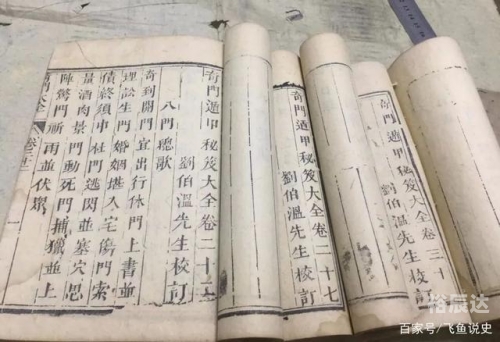 奇門遁甲秘笈大全卷三十
劉伯溫先生校訂
奇門遁甲秘笈大全卷二十七
劉伯溫先生校訂
奇門遁甲秘笈大全卷二十
劉伯溫先生校訂
八門總歌
奇到開門宜出行休門上書並
理訟生門婚姻堪入宅傷門索
債終須中杜門逃閃並塞穴思
量酒肉景門動死門捕獵並上
陣驚門 雨並伏
門大全
裕辰达
百家号/飞鱼说史